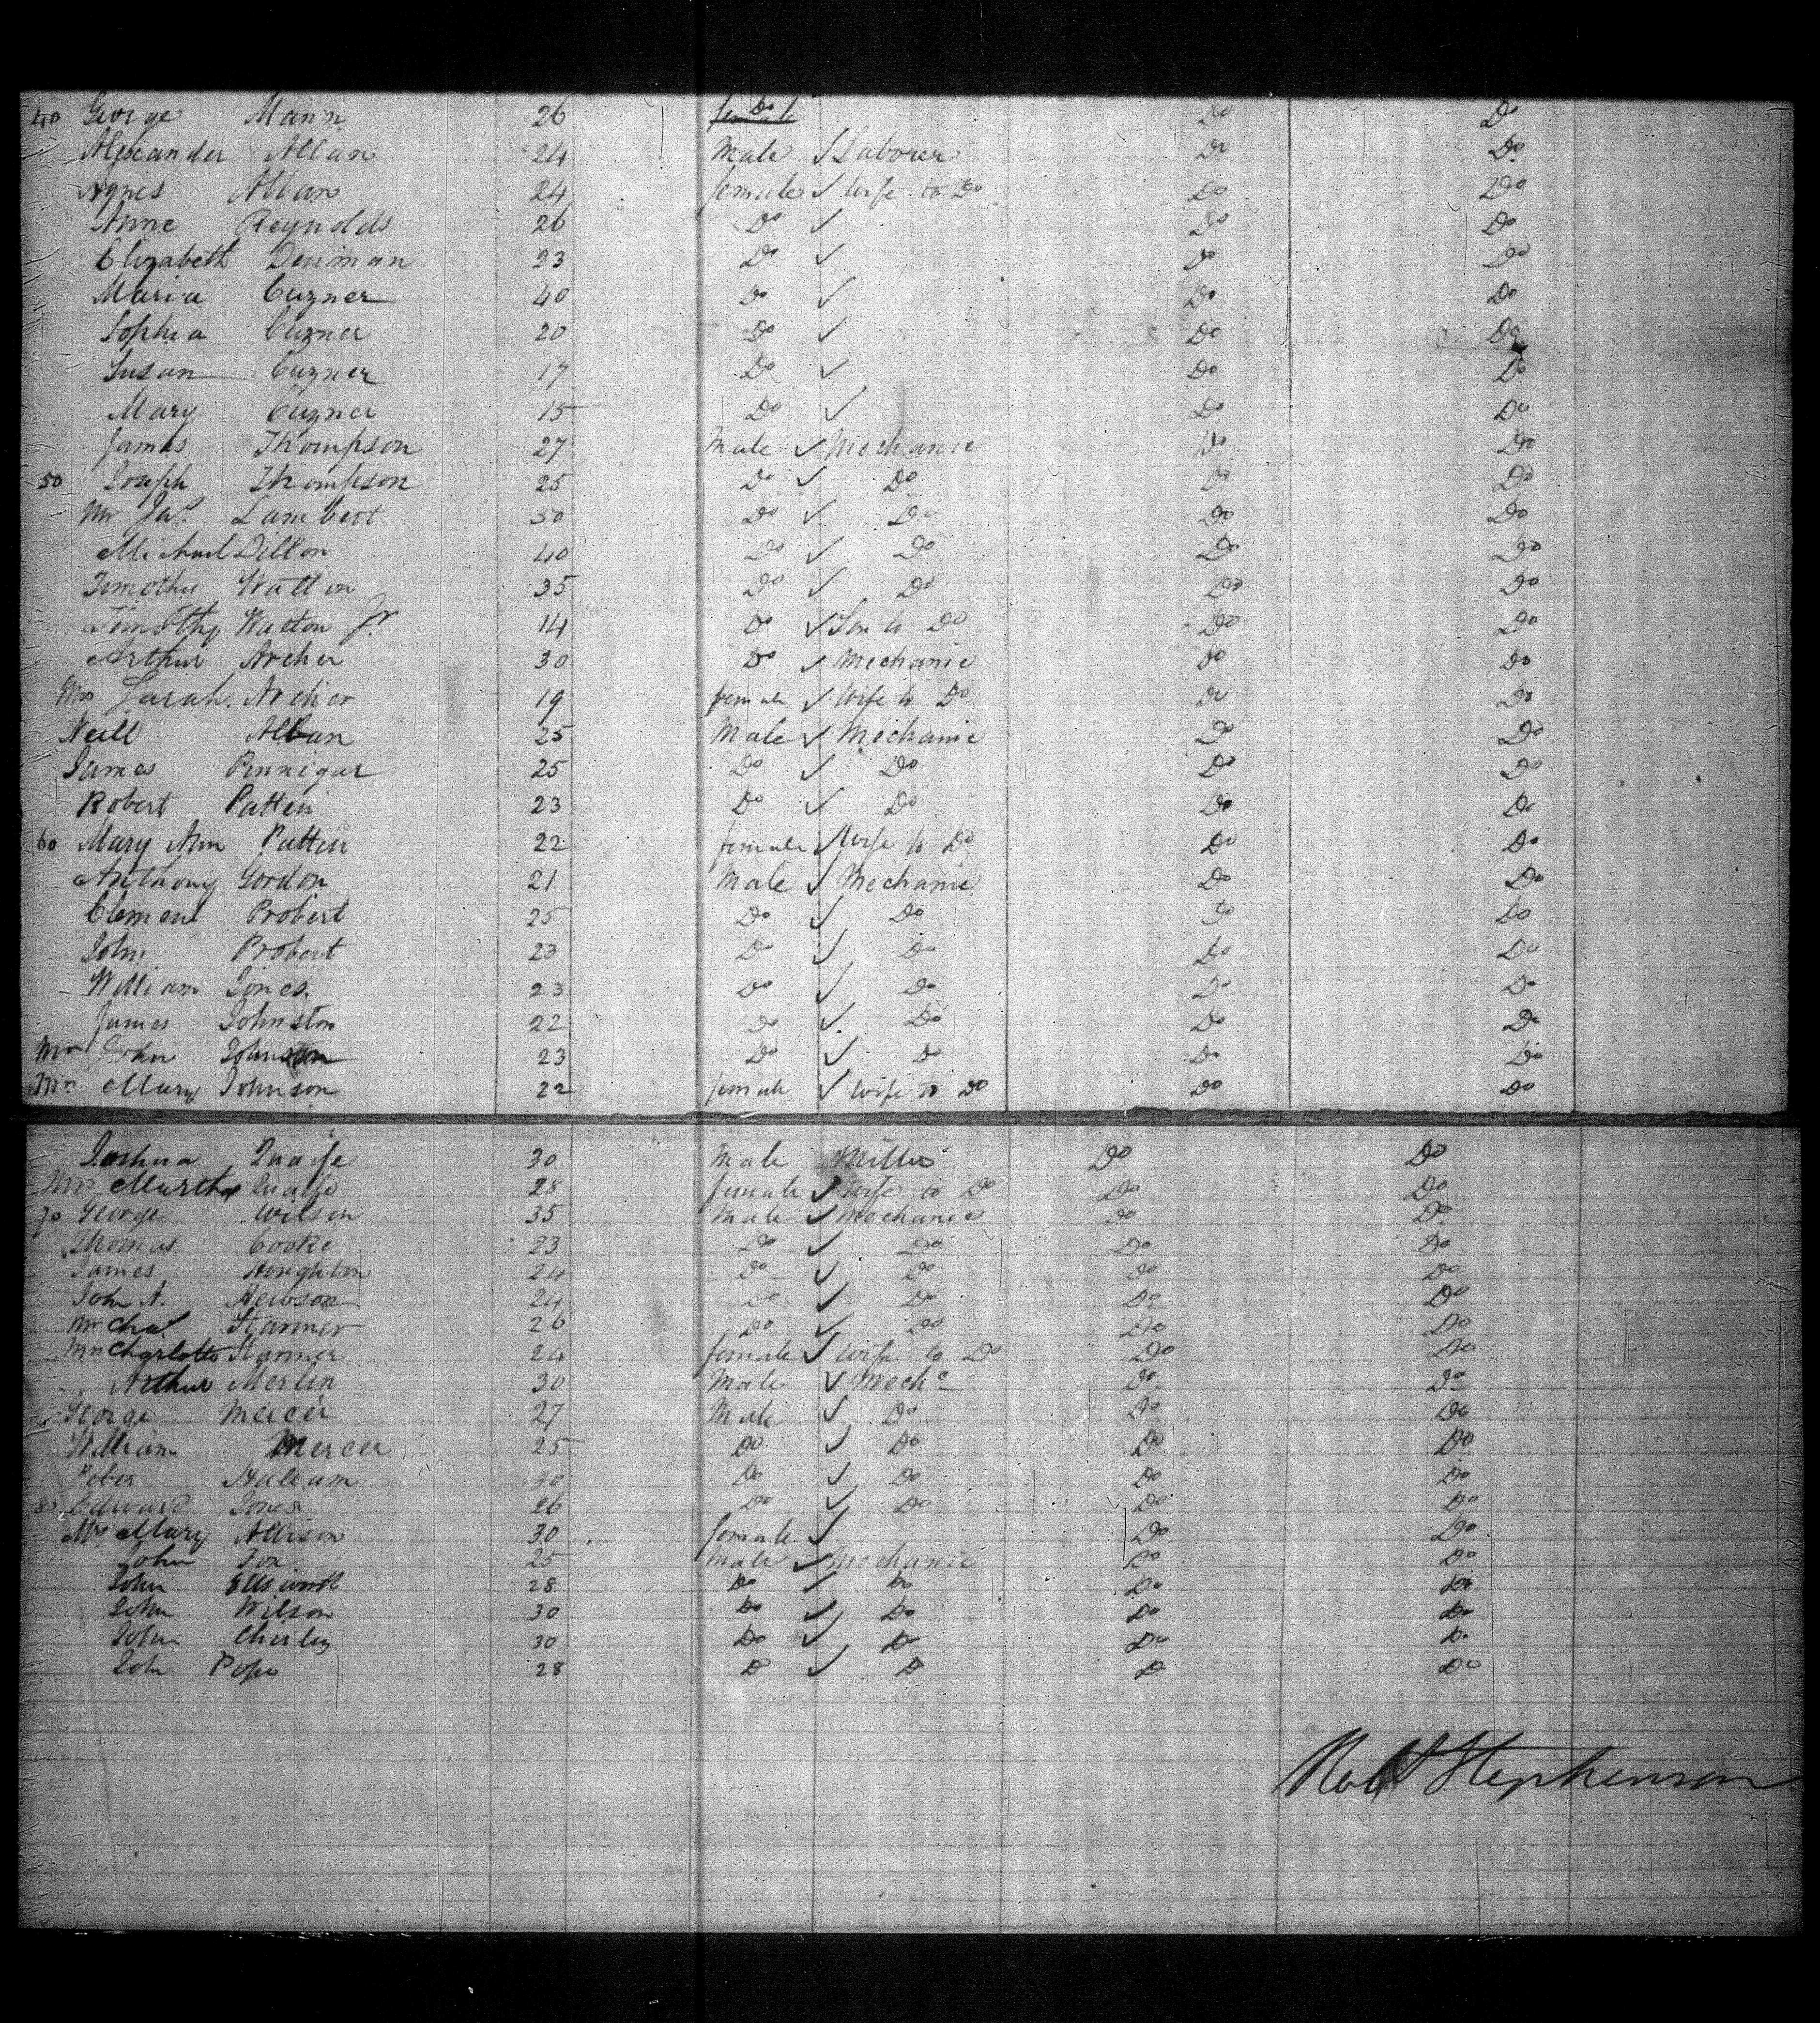 40 George Mann 26 Do Do Do
Alexander Allan 24 Male ✓ Laborer Do Do
Agnes Allan 24 female ✓ wife to Do Do Do
Anne Reynolds 26 Do ✓ Do Do
Elizabeth Denman 23 Do ✓ Do Do
Maria Cuzner 40 Do ✓ Do Do
Sophia Cuzner 20 Do ✓ Do Do
Susan Cuzner 17 Do ✓ Do Do
Mary Cuzner 15 Do ✓ Do Do
James Thompson 27 Male ✓ Mechanic Do Do
50 Joseph Thompson 25 Do ✓ Do Do Do
Mr Jas. Lambert 50 Do ✓ Do Do Do
Michael Dillon 40 Do ✓ Do Do Do
Timothy Watton 35 Do ✓ Do Do Do
Timothy Watton Jr 14 Do ✓ Son to Do Do Do
Arthur Archer 30 Do ✓ Mechanic Do Do
Mrs Sarah Archer 19 female ✓ Wife to Do Do Do
Neill Alban 25 Male ✓ Mechanic Do Do
James Pinnigar 25 Do ✓ Do Do Do
Robert Patten 23 Do ✓ Do Do Do
60 Mary Ann Patten 22 female ✓ wife to Do Do Do
Anthony Gordon 21 Male ✓ Mechanic Do Do
Clement Probert 25 Do ✓ Do Do Do
John Probert 23 Do ✓ Do Do Do
William Jones 23 Do ✓ Do Do Do
James Johnston 22 Do ✓ Do Do Do
Mr John Johnson 23 Do ✓ Do Do Do
Mrs Mary Johnson 22 female ✓ wife to Do Do Do
Joshua Quaife 30 Male Miller Do Do
Mrs Martha Quaife 28 female ✓ Wife to Do Do Do
70 George Wilson 35 Male ✓ Mechanic Do Do
Thomas Cooke 23 Do ✓ Do Do Do
James 24 Do ✓ Do Do Do
John A. Hewson 24 Do ✓ Do Do Do
Mr Chas. Starmer 26 Do ✓ Do Do Do
Mrs Charlotte Starmer 24 female ✓ wife to Do Do Do
Arthur Merlin 30 Male ✓ Mechc Do Do
George Mercer 27 Male ✓ Do Do Do
William Mercer 25 Do ✓ Do Do Do
Peter Hallam 30 Do ✓ Do Do Do
80 Edward Jones 26 Do ✓ Do Do Do
Mrs Mary Allison 30 female ✓ Do Do
John Fox 25 Male ✓ Mechanic Do Do
John Ellsworth 28 Do ✓ Do Do Do
John Wilson 30 Do ✓ Do Do Do
John 30 Do ✓ Do Do Do
John Pope 28 Do ✓ Do Do Do
Robt Stephenson